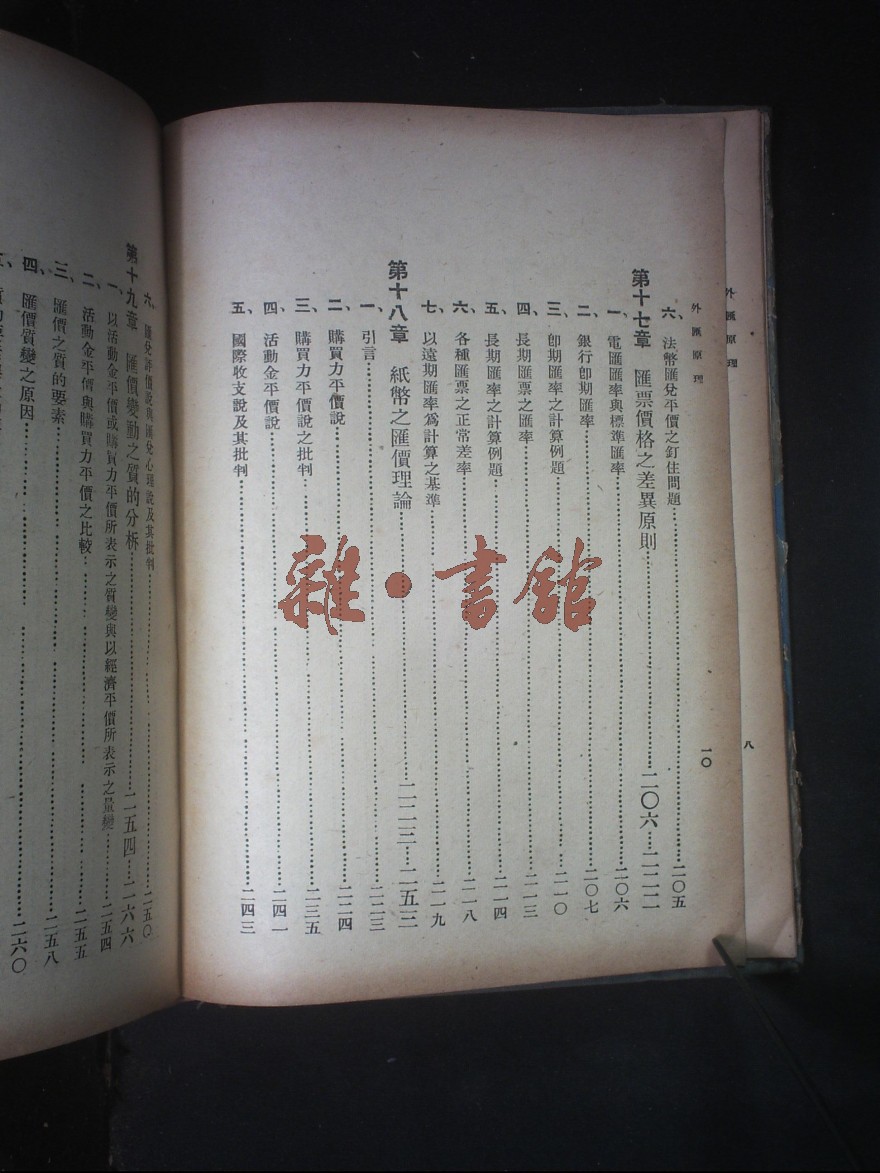 外匯原理
八
外匯原理
一〇
六、法幣匯兌平價之釘住問題……二〇五
第十七章 匯票價格之差異原則……二〇六……二二二
一、電匯匯率與標準匯率……二〇六
二、銀行卽期匯率……二〇七
三、卽期匯率之計算例題……二一〇
四、長期匯票之匯率……二一三
五、長期匯率之計算例題……二一四
六、各種匯票之正常差率……二一八
七、以遠期匯率爲計算之基準……二一九
第十八章 紙幣之匯價理論……二二三……二五三
一、引言……二二三
二、購買力平價說……二二四
三、購買力平價說之批判……二三五
四、活動金平價說……二四一
五、國際收支說及其批判……二四三
六、匯兌評價說與匯兌心理說及其批判……二五〇
第十九章 匯價變動之質的分析……二五四……二六六
一、以活動金平價或購買力平價所表示之質變與以經濟平價所表示之量變……二五四
二、活動金平價與購買力平價之比較……二五五
三、匯價之質的要素……二五八
四、匯價質變之原因……二六〇
雜·書館